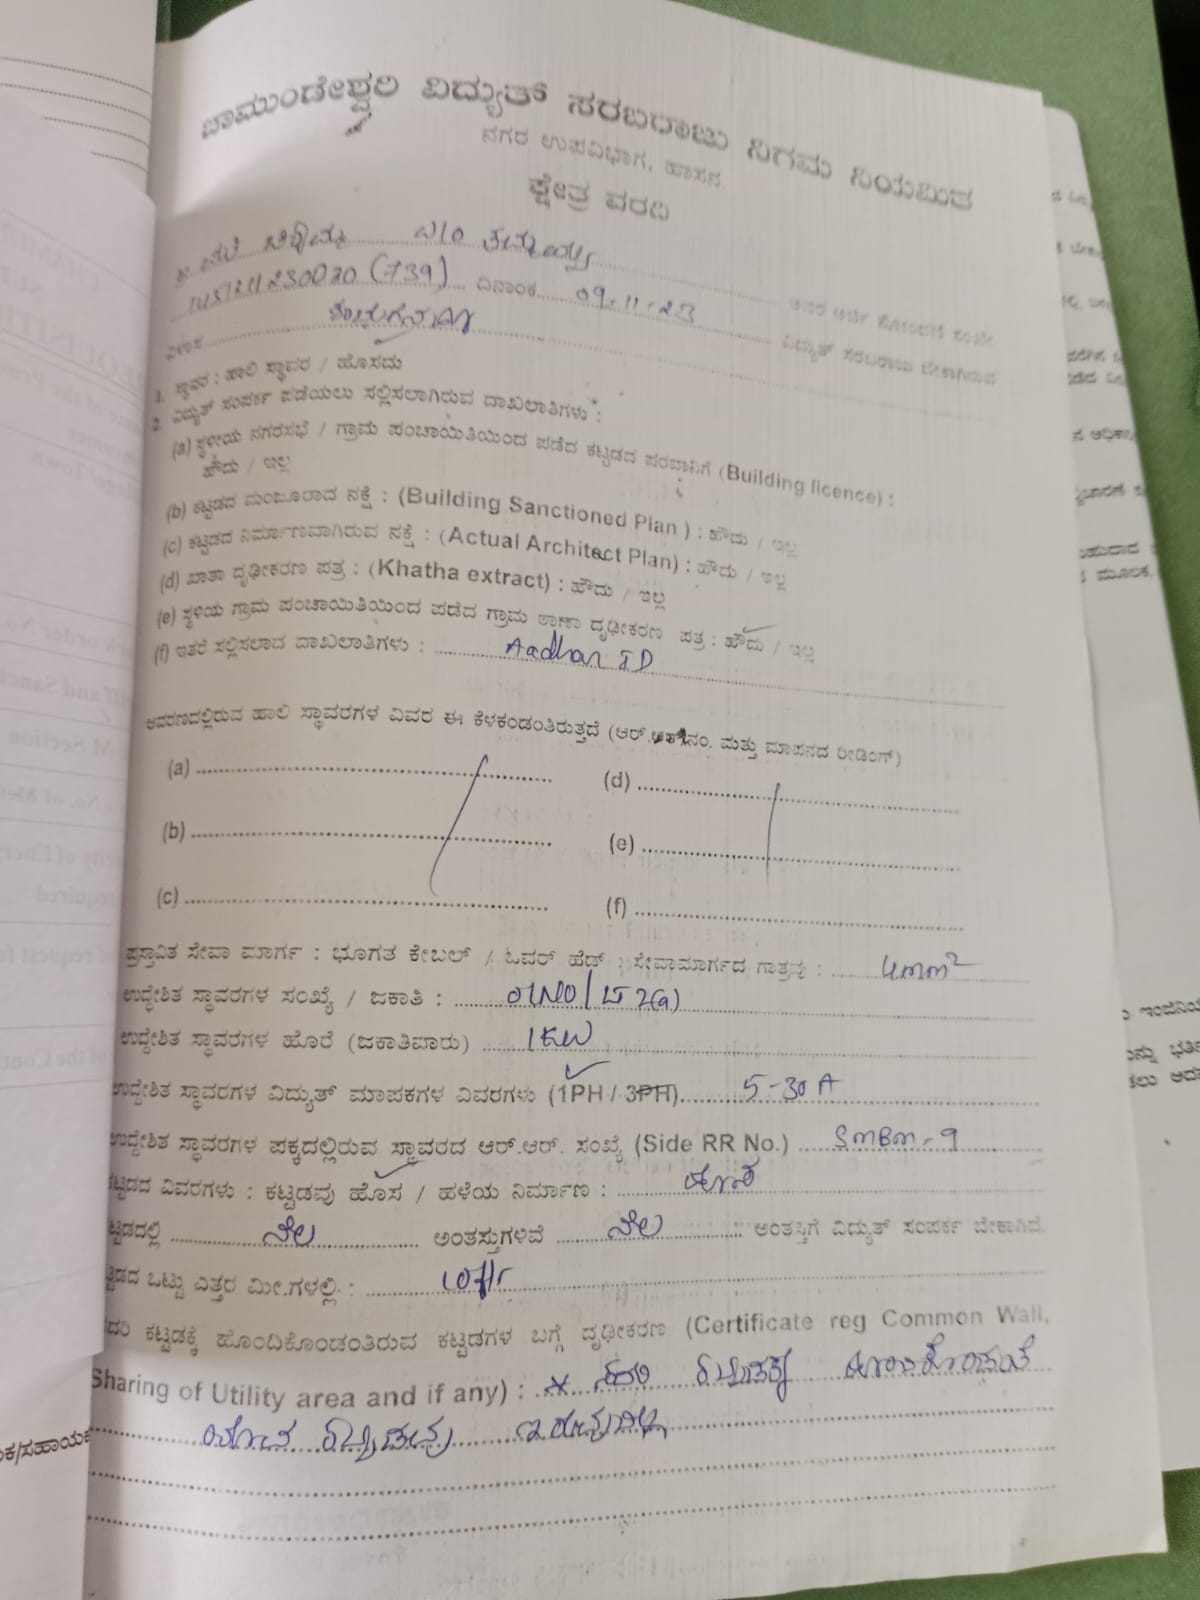 ಚಾಮುಂಡೇಶ್ವರಿ ವಿದ್ಯುತ್ ಸರಬರಾಜು ನಿಗಮ ನಿಯಮಿತ
ನಗರ ಉಪವಿಭಾಗ, ಹಾಸನ.
ಕ್ಷೇತ್ರ ವರದಿ
(739) ದಿನಾಂಕ 09-11-23 ಅವರ ಅರ್ಜಿ ನೋಂದಣಿ ಸಂಖ್ಯೆ
ವಿಳಾಸ ವಿದ್ಯುತ್ ಸರಬರಾಜು ಬೇಕಾಗಿರುವ
1. ಸ್ಥಾವರ : ಹಾಲಿ ಸ್ಥಾವರ / ಹೊಸದು
2. ವಿದ್ಯುತ್ ಸಂಪರ್ಕ ಪಡೆಯಲು ಸಲ್ಲಿಸಲಾಗಿರುವ ದಾಖಲಾತಿಗಳು :
(a) ಸ್ಥಳೀಯ ನಗರಸಭೆ / ಗ್ರಾಮ ಪಂಚಾಯಿತಿಯಿಂದ ಪಡೆದ ಕಟ್ಟಡದ ಪರವಾನಿಗೆ (Building licence) :
ಹೌದು / ಇಲ್ಲ
(b) ಕಟ್ಟಡದ ಮಂಜೂರಾದ ನಕ್ಷೆ : (Building Sanctioned Plan ) : ಹೌದು / ಇಲ್ಲ
(c) ಕಟ್ಟಡದ ನಿರ್ಮಾಣವಾಗಿರುವ ನಕ್ಷೆ : (Actual Architect Plan) : ಹೌದು / ಇಲ್ಲ
(d) ಖಾತಾ ದೃಢೀಕರಣ ಪತ್ರ : (Khatha extract) : ಹೌದು / ಇಲ್ಲ
(e) ಸ್ಥಳಿಯ ಗ್ರಾಮ ಪಂಚಾಯಿತಿಯಿಂದ ಪಡೆದ ಗ್ರಾಮ ಠಾಣಾ ದೃಢೀಕರಣ ಪತ್ರ : ಹೌದು / ಇಲ್ಲ
(f) ಇತರೆ ಸಲ್ಲಿಸಲಾದ ದಾಖಲಾತಿಗಳು : Aadhar ID
ಆವರಣದಲ್ಲಿರುವ ಹಾಲಿ ಸ್ಥಾವರಗಳ ವಿವರ ಈ ಕೆಳಕಂಡಂತಿರುತ್ತದೆ (ಆರ್.ಆರ್.ನಂ. ಮತ್ತು ಮಾಪನದ ರೀಡಿಂಗ್)
(a) (d)
(b) (e)
(c) (f)
ಪ್ರಸ್ತಾವಿತ ಸೇವಾ ಮಾರ್ಗ : ಭೂಗತ ಕೇಬಲ್ / ಓವರ್ ಹೆಡ್ : ಸೇವಾಮಾರ್ಗದ ಗಾತ್ರವು : 4mm²
ಉದ್ದೇಶಿತ ಸ್ಥಾವರಗಳ ಸಂಖ್ಯೆ / ಜಕಾತಿ : 01NO/ LT 2(a)
ಉದ್ದೇಶಿತ ಸ್ಥಾವರಗಳ ಹೊರೆ (ಜಕಾತಿವಾರು) 1KW
ಉದ್ದೇಶಿತ ಸ್ಥಾವರಗಳ ವಿದ್ಯುತ್ ಮಾಪಕಗಳ ವಿವರಗಳು (1PH / 3PH) 5-30 A
ಉದ್ದೇಶಿತ ಸ್ಥಾವರಗಳ ಪಕ್ಕದಲ್ಲಿರುವ ಸ್ಥಾವರದ ಆರ್.ಆರ್. ಸಂಖ್ಯೆ (Side RR No.) SMBM-9
ಕಟ್ಟಡದ ವಿವರಗಳು : ಕಟ್ಟಡವು ಹೊಸ / ಹಳೆಯ ನಿರ್ಮಾಣ : ಹೊಸ
ಕಟ್ಟಡದಲ್ಲಿ ನೆಲ ಅಂತಸ್ತುಗಳಿವೆ ನೆಲ ಅಂತಸ್ತಿಗೆ ವಿದ್ಯುತ್ ಸಂಪರ್ಕ ಬೇಕಾಗಿದೆ.
ಕಟ್ಟಡದ ಒಟ್ಟು ಎತ್ತರ ಮೀ.ಗಳಲ್ಲಿ : 10ft
ಸದರಿ ಕಟ್ಟಡಕ್ಕೆ ಹೊಂದಿಕೊಂಡಂತಿರುವ ಕಟ್ಟಡಗಳ ಬಗ್ಗೆ ದೃಢೀಕರಣ (Certificate reg Common Wall,
Sharing of Utility area and if any) : * ಸದರಿ ಕಟ್ಟಡಕ್ಕೆ ಹೊಂದಿಕೊಂಡಂತೆ
ಯಾವ ಕಟ್ಟಡವು ಇರುವುದಿಲ್ಲ